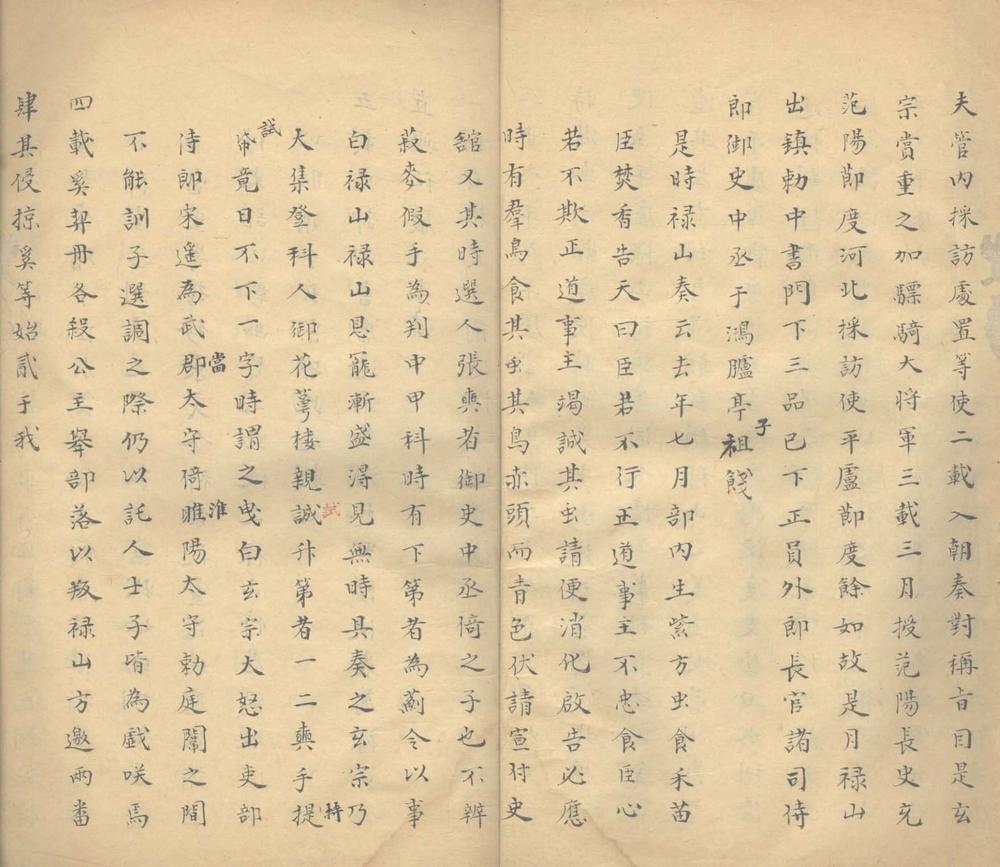 夫管内採訪處置等使二載入朝奏對稱旨目是玄
宗賞重之加驃騎大将軍三載三月授范陽長史充
范陽節度河北採訪使平盧節度餘如故是月禄山
出鎮勅中書門下三品已下正員外郎長官諸司侍
郎御史中丞于鴻臚亭子祖餞
是時禄山奏云去年七月部内生紫方虫食禾苗
臣焚香告天曰臣若不行正道事主不忠食臣心
若不欺正道事主竭誠其虫請便消化啟告必應
時有羣鳥食其虫其鳥赤頭而青色伏請宣付史
舘又其時選人張奭者御史中丞倚之子也不辨
菽麥假手為判中甲科時有下第者為薊令以事
白禄山禄山恩寵漸盛得見無時具奏之玄宗乃
大集登科人御花萼樓親誠升第者一二奭手提
試
持
試
帋竟日不下一字時謂之曳白玄宗大怒出吏部
侍郎宋遥為武郡太守倚雎陽太守勅庭闈之間
當
淮
不能訓子選調之際仍以託人士子皆為戲咲焉
四載奚契丹各殺公主舉部落以叛禄山方邀兩番
肆其侵掠奚等始貳于我